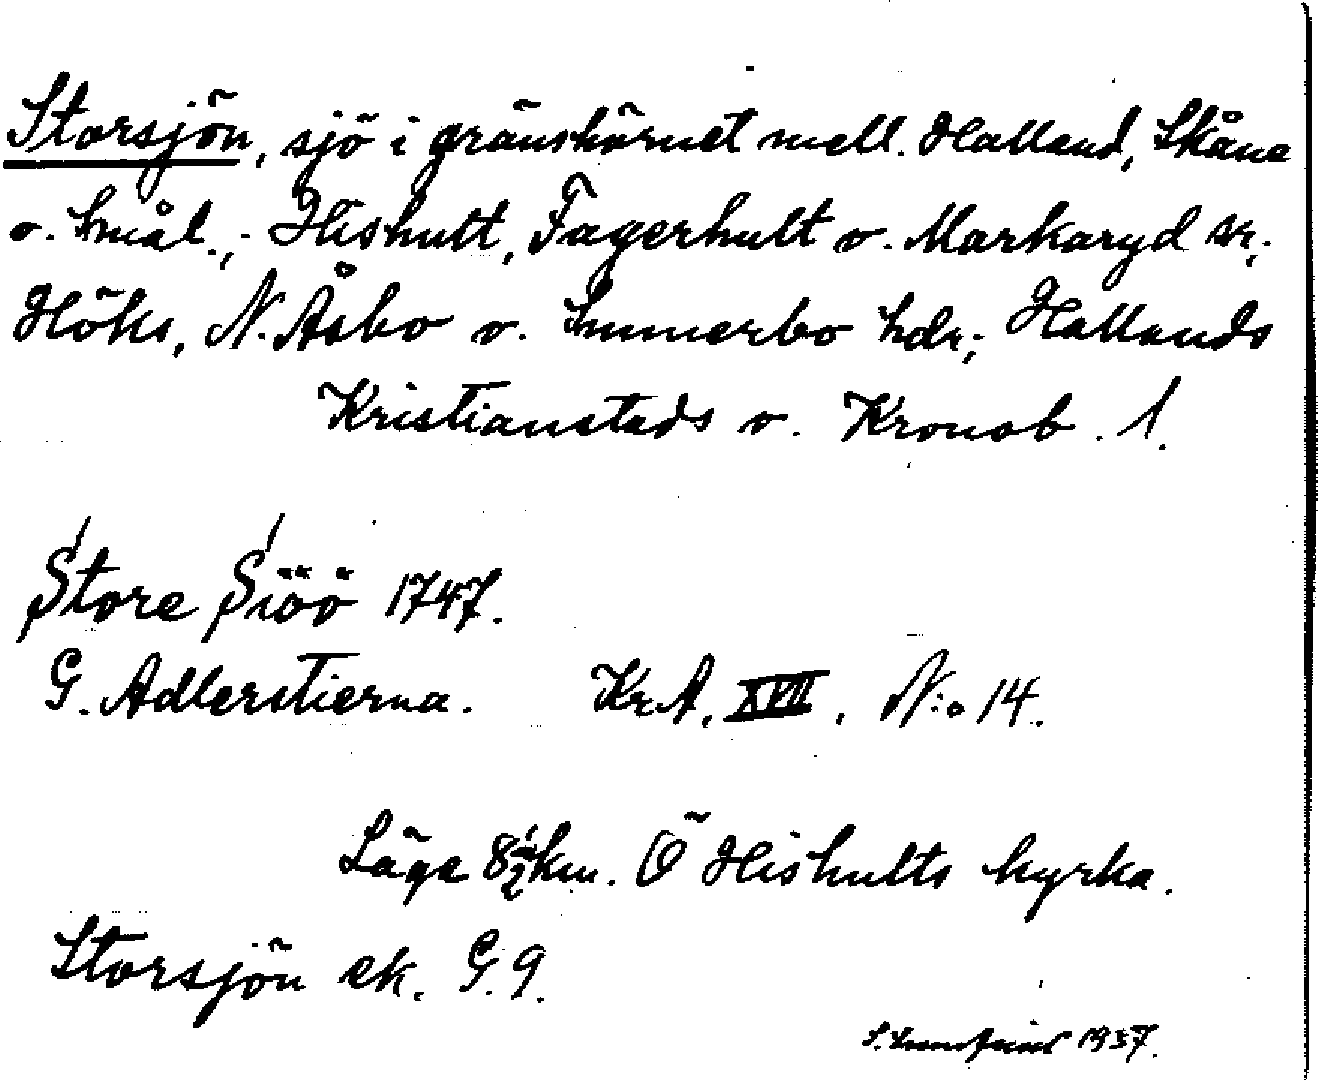 Storsjön, sjö i gränshörnet mell. Halland, Skåne
o. Smål.; Hishult, Fagerhult o. Markaryd sr,
Höks, N. Åsbo o. Sunnerbo hdr; Hallands
Kristianstads o. Kronob. l.
Store Siöö 1747.
G. Adlerstierna. KrA. XVII. N:o 14.
Läge 8½ km. Ö Hishults kyrka.
Storsjön ek. G. 9.
1937.